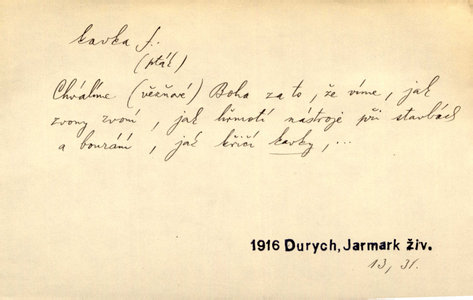 kavka f.
(pták)
Chválíme (věžňové) Boha za to, že víme, jak
zvony zvoní, jak hřmotí nástroje při stavbách
a bourání, jak křičí kavky, ...
1916 Durych, Jarmark živ.
13, 31.